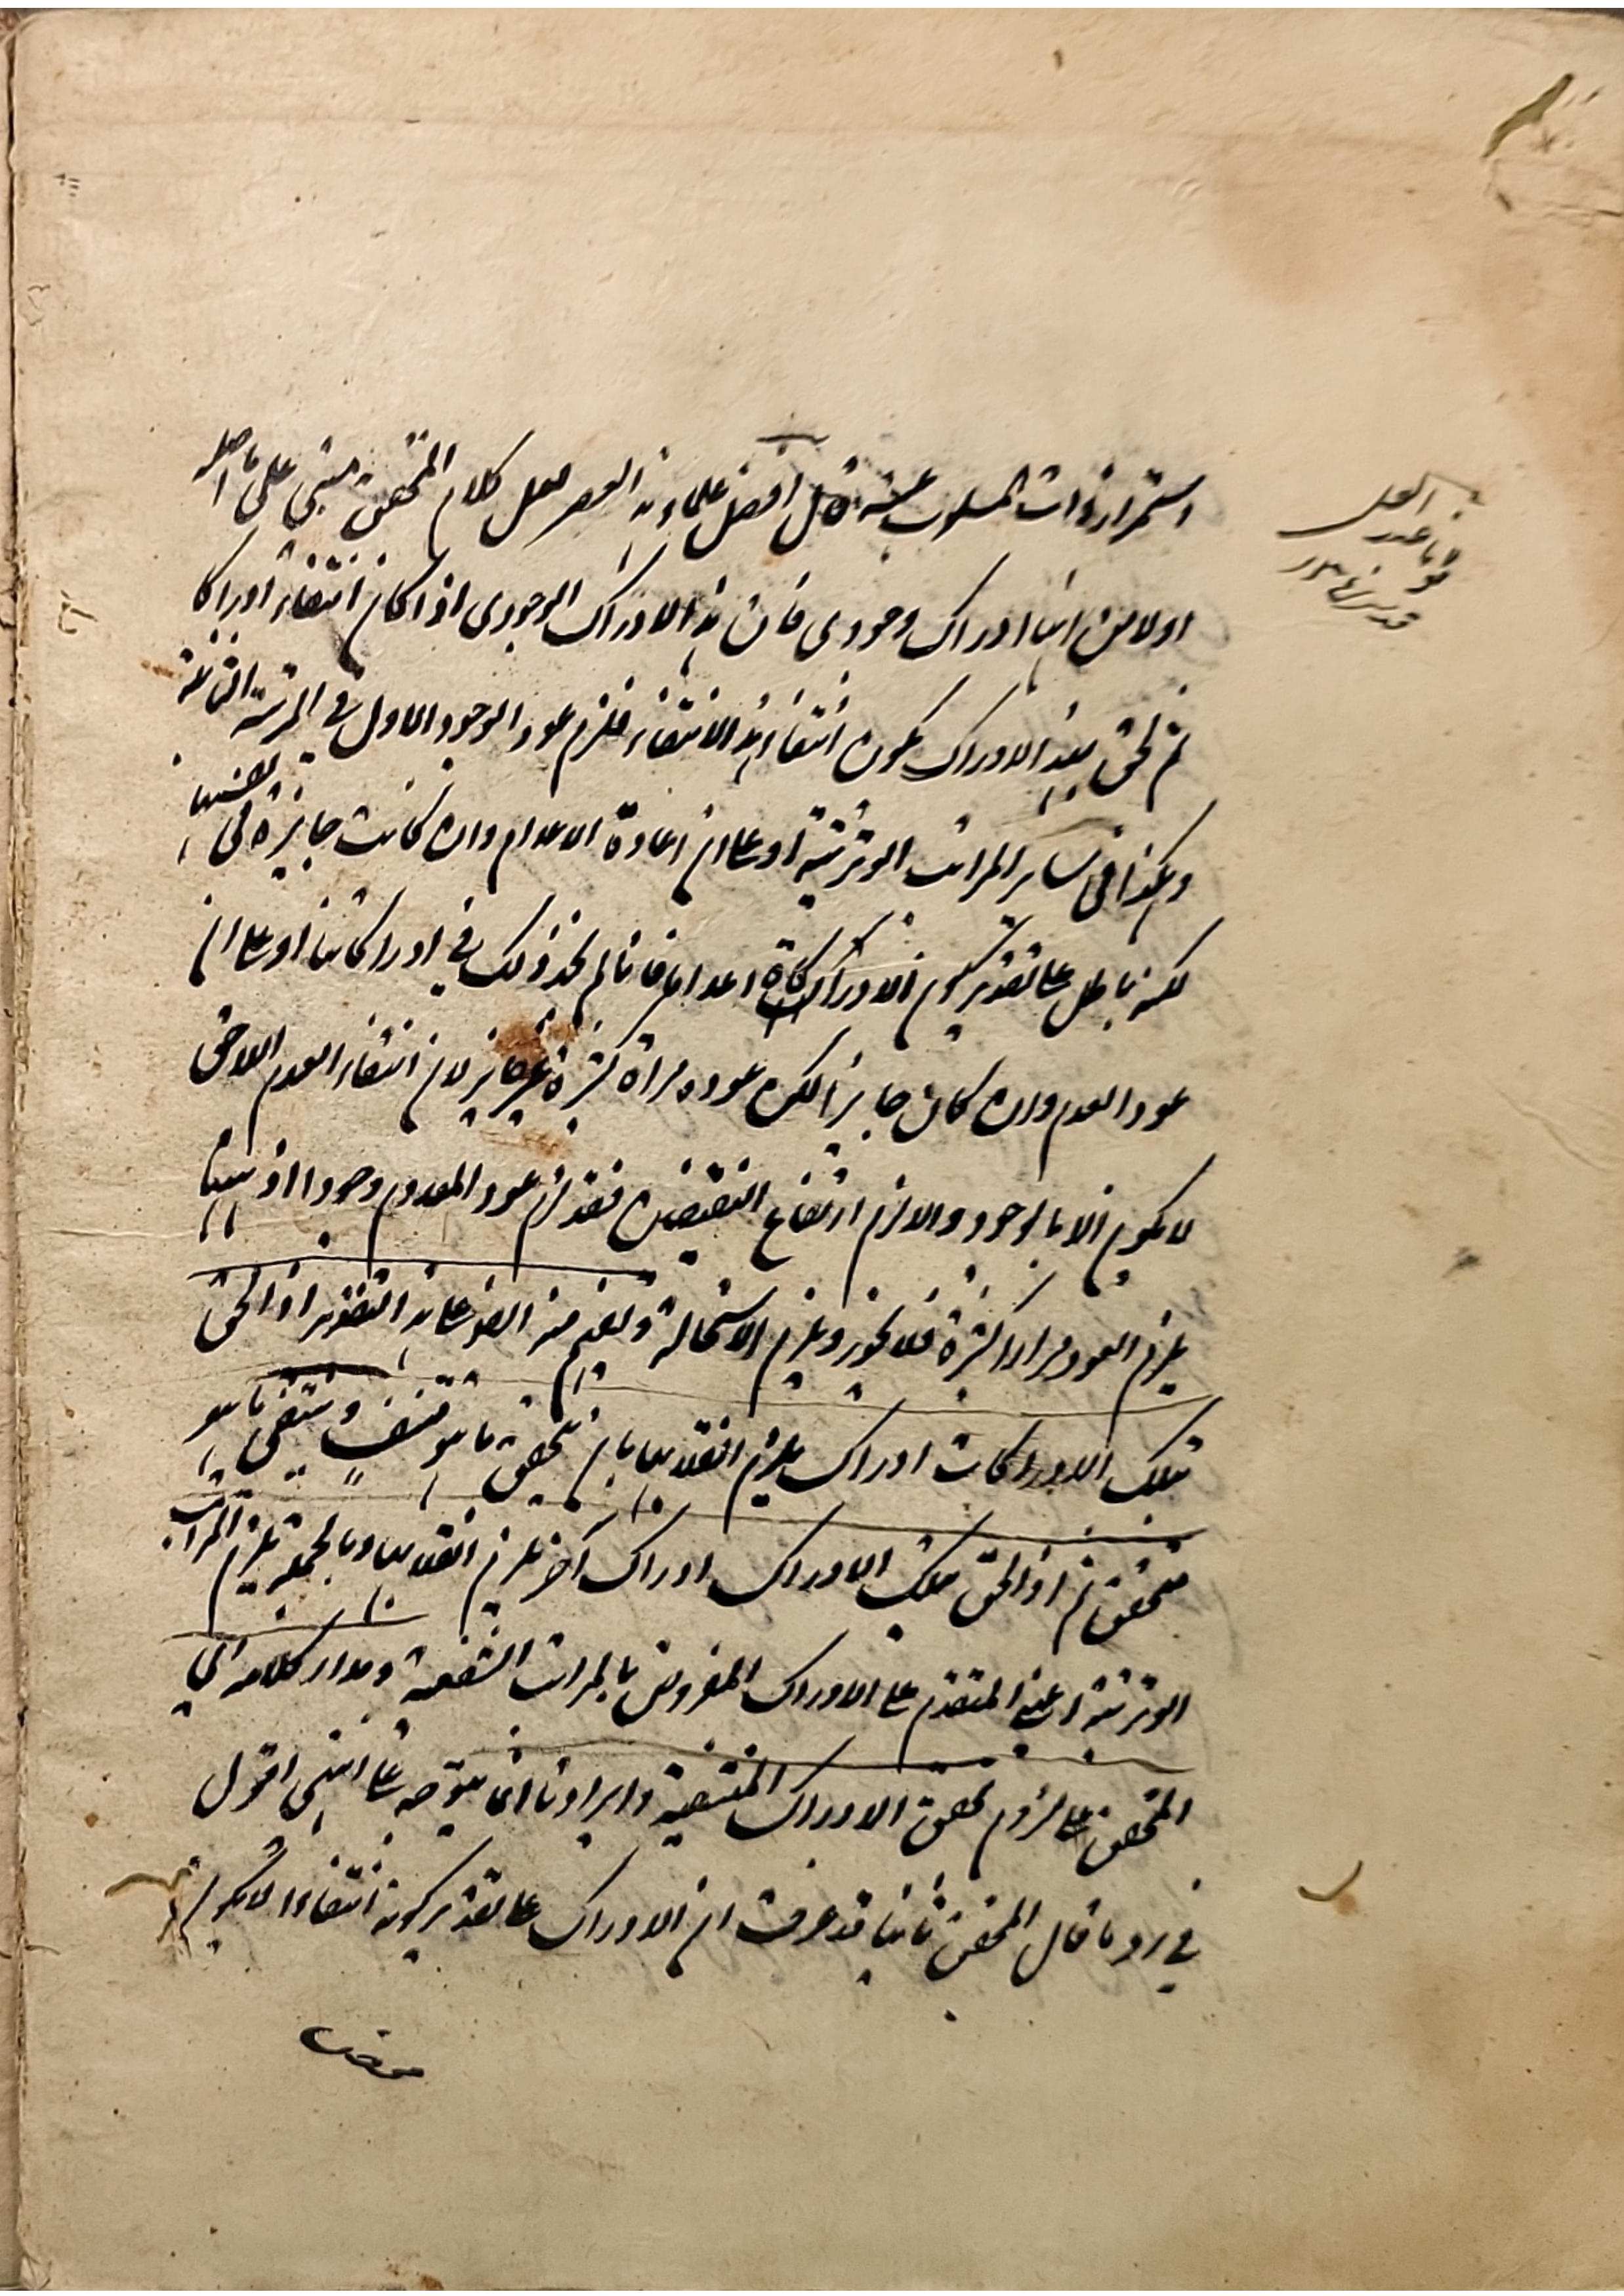 استمرار ذات المسلوب عنه قال افضل علماء هذا العصر لعل كلام المحقق مبنى على ما اصله
اولا من انها ادراك وجودى فان هذا الادراك الوجودى اذا كان انتفاء ادراكا
ثم لحق بهذا الادراك يكون انتفاء لهذا الانتفاء فلزم عود الوجود الاول فى المرتبة الثانية
وهكذا فى ساير المراتب الوترتية او على ان اعادة الاعدام وان كانت جايزة فى نفسها
لكنه باطل على تقدير كون الادراكات اعداما فانا لم نجد ذلك فى ادراكاتنا او على ان
عود العدم وان كان جايزا لكن عوده مراة كثيرة غير جايز لان انتفاء العدم اللاحق
لا يكون الا بالوجود والا لزم ارتفاع النقيضين فقد لزم عود المعدوم وجودا اذ ههنا
يلزم العود مرارا كثيرة فلا يجوز ويلزم الاستحالة ويفهم منه ايضا على هذا التقدير اذا لحق
تلك الادراكات ادراك يلزم انقلابها بان يتحقق ما هو منتف وينتفى ما هو
متحقق ثم اذا لحق تلك الادراك ادراك آخر يلزم انقلابها وبالجملة يلزم المراتب
الوترتية اعنى المتقدم على الادراك المفروض بالمراتب الشفعية ومدار كلامه اى
المحقق على لزوم تحقق الادراك المنتفية وايرادنا انما يتوجه على انتهى اقول
فى رد ما قال المحقق ثانيا قد عرفت ان الادراك على تقدير كونه انتفاءا لا يكون